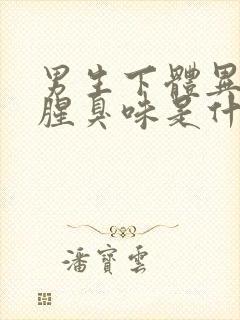 男生下體異
腥臭味是什
潘寶雲